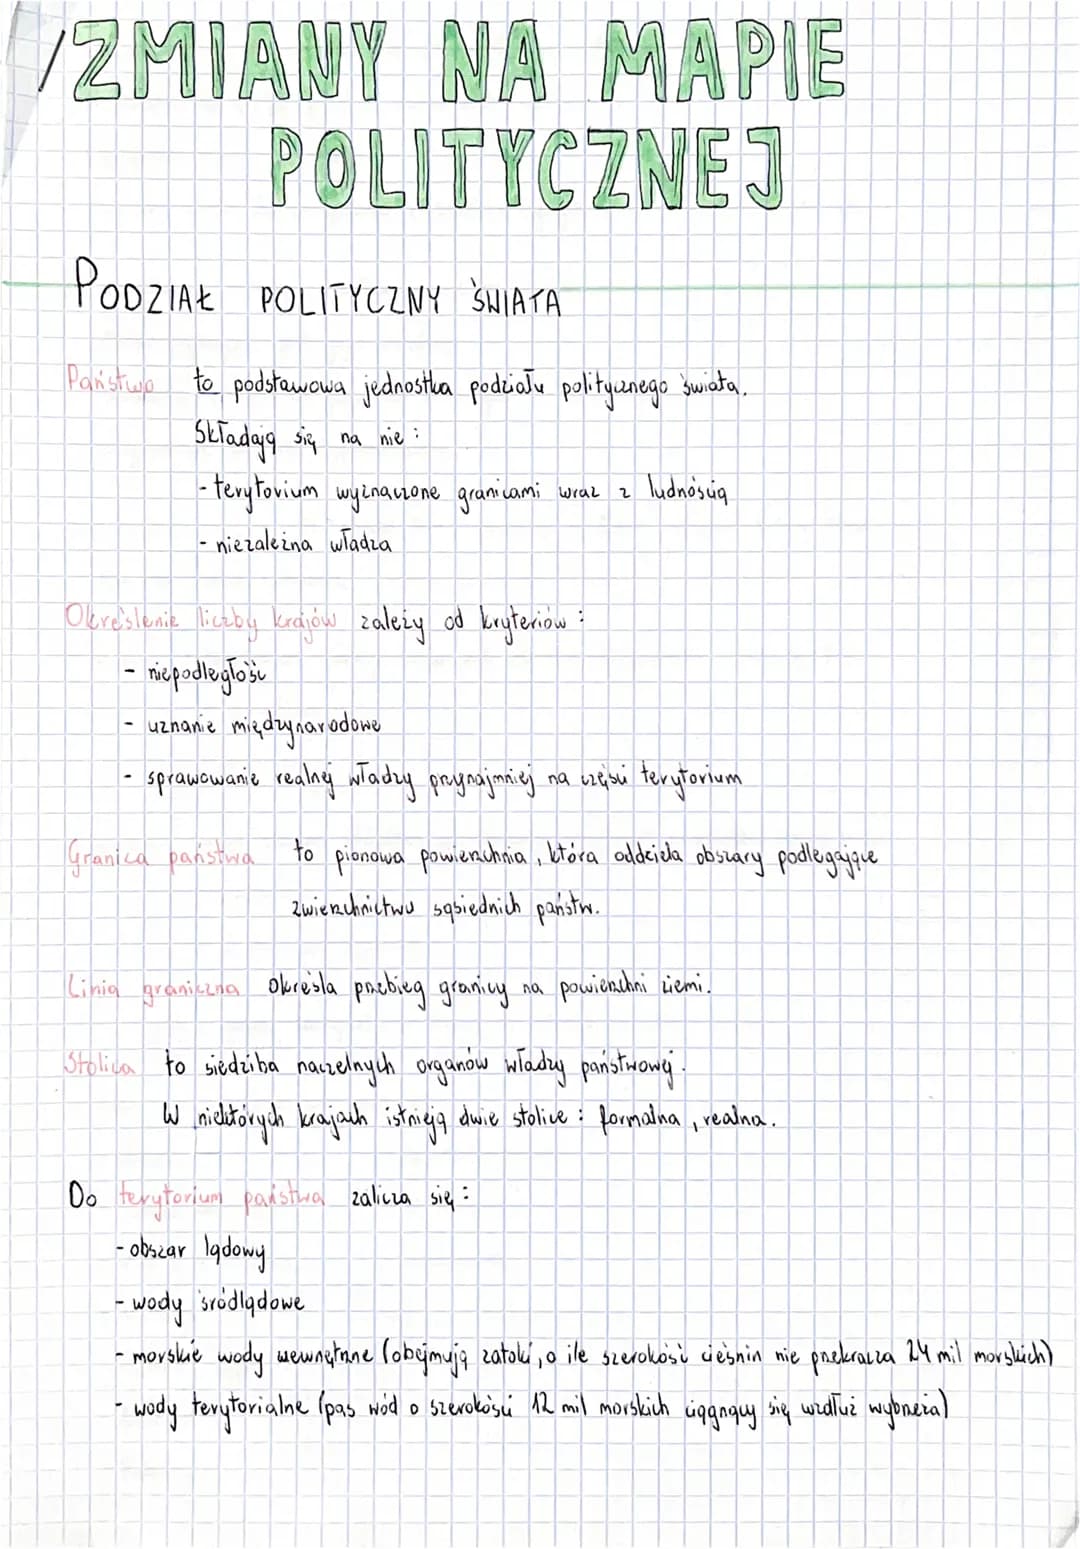 ZMIANY NA MAPIE
POLITYCZNEJ
PODZIAŁ POLITYCZNY ŚWIATA
Państwo to podstawowa jednostka podziału politycznego świata.
Składają się na nie:
- terytorium wyznaczone granicami wraz z ludnością
- niezależna władza
Określenie liczby krajów zależy od kryteriów:
- niepodległość
- uznanie międzynarodowe
- sprawowanie realnej władzy przynajmniej na części terytorium
Granica państwa to pionowa powierzchnia, która oddziela obszary podlegające
zwierzchnictwu sąsiednich państw.
Linia graniczna określa przebieg granicy na powierzchni ziemi.
Stolica to siedziba naczelnych organów władzy państwowej.
W niektórych krajach istnieją dwie stolice: formalna, realna.
Do terytorium państwa zalicza się:
- obszar lądowy
- wody śródlądowe
- morskie wody wewnętrzne (obejmują zatoki, o ile szerokość cieśnin nie przekracza 24 mil morskich)
- wody terytorialne (pas wód o szerokości 12 mil morskich ciągnący się wzdłuż wybrzeża)